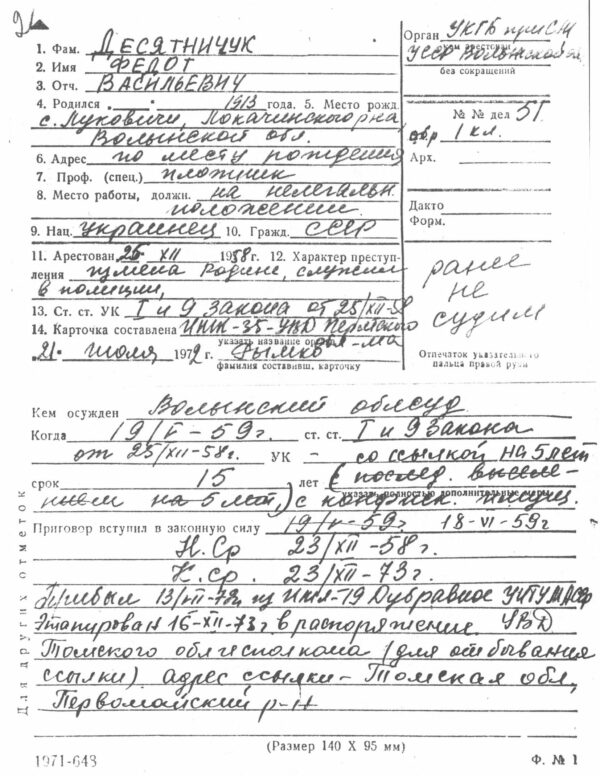 1. Фам. Десятничук
2. Имя Федот
3. Отч. Васильевич
4. Родился 1913 года. 5. Место рожд.
с. Луковичи, Локачинского р-на,
Волынской обл.
6. Адрес по месту рождения
7. Проф. (спец.) плотник
8. Место работы, должн. на нелегальн.
положении.
9. Нац. украинец 10. Гражд. СССР
11. Арестован 25 XII 1958 г. 12. Характер преступ-
ления измена Родине, служил
в полиции,
13. Ст. ст. УК I и 9 Закона от 25/XII-58
14. Карточка составлена ИТК-35-УВД Пермского
указать название орг
21. июля 1972 г. Рымко
фамилия составивш. карточку
Орган УКГБ при СМ
УССР Волынской
без сокращений
№ № дел 51
1 кл.
Арх.
Дакто
Форм.
ранее
не
судим
Отпечаток указательного
пальца правой руки
Кем осужден Волынский облсуд
Когда 19/V-59г. ст. ст. I и 9 Закона
от 25/XII-58г. УК - со ссылкой на 5 лет
срок 15 лет (послед. выселе-
указать полностью дополнительные меры
нием на 5 лет,) с конфиск. имущ.
Приговор вступил в законную силу 19/V-59г. 18-VI-59г
Н.Ср 23/XII-58г.
К.Ср. 23/XII-73г.
Прибыл 13/VII-72г из ИТК-19 Дубравное УИТУ МАССР
Этапирован 16-XII-73г в распоряжение УВД
Томского облисполкома (для отбывания
ссылки) адрес ссылки - Томская обл,
Первомайский р-н
Для других отметок
(Размер 140 X 95 мм)
1971-643
Ф. № 1